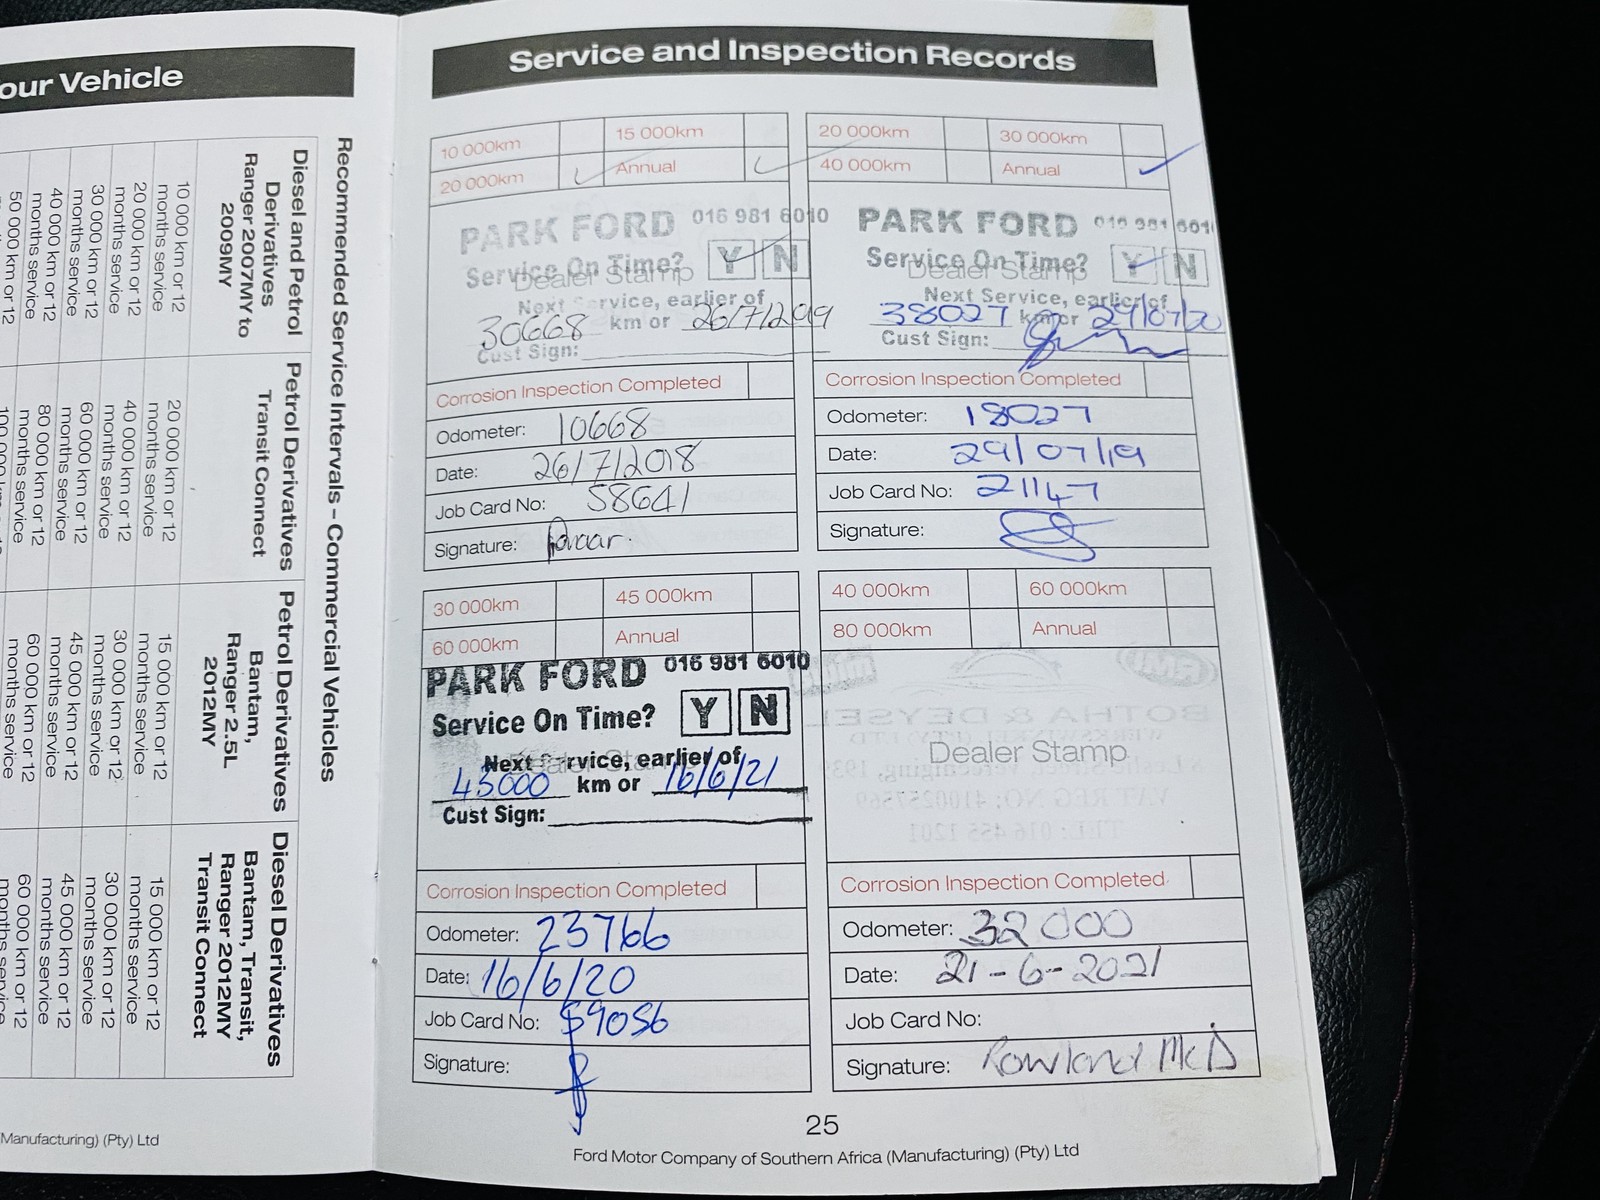 our Vehicle
Recommended Service Intervals – Commercial Vehicles
Diesel and Petrol
Derivatives
Ranger 2007MY to
2009MY
10 000 km or 12
months service
20 000 km or 12
months service
30 000 km or 12
months service
40 000 km or 12
months service
50 000 km or 12
Petrol Derivatives
Transit Connect
20 000 km or 12
months service
40 000 km or 12
months service
60 000 km or 12
months service
80 000 km or 12
months service
Petrol Derivatives
Bantam,
Ranger 2.5L
2012MY
15 000 km or 12
months service
30 000 km or 12
months service
45 000 km or 12
months service
60 000 km or 12
months service
Diesel Derivatives
Bantam, Transit,
Ranger 2012MY
Transit Connect
15 000 km or 12
months service
30 000 km or 12
months service
45 000 km or 12
months service
60 000 km or 12
months service
(Manufacturing) (Pty) Ltd
Service and Inspection Records
10 000km 15 000km
20 000km Annual
PARK FORD 016 981 6010
Service On Time? Y N
Dealer Stamp
Next Service, earlier of
30668 km or 26/7/2019
Cust Sign:
Corrosion Inspection Completed
Odometer: 10668
Date: 26/7/2018
Job Card No: 58641
Signature:
20 000km 30 000km
40 000km Annual
PARK FORD 016 981 601
Service On Time? Y N
Dealer Stamp
Next Service, earlier of
38027 km or 29/07/20
Cust Sign:
Corrosion Inspection Completed
Odometer: 18027
Date: 29/07/19
Job Card No: 21147
Signature:
30 000km 45 000km
60 000km Annual
PARK FORD 016 981 6010
Service On Time? Y N
Next Service, earlier of
43000 km or 16/6/21
Cust Sign:
Corrosion Inspection Completed
Odometer: 23766
Date: 16/6/20
Job Card No: 59056
Signature:
40 000km 60 000km
80 000km Annual
Dealer Stamp
Corrosion Inspection Completed
Odometer: 32000
Date: 21-6-2021
Job Card No:
Signature: Rowland McD
25
Ford Motor Company of Southern Africa (Manufacturing) (Pty) Ltd